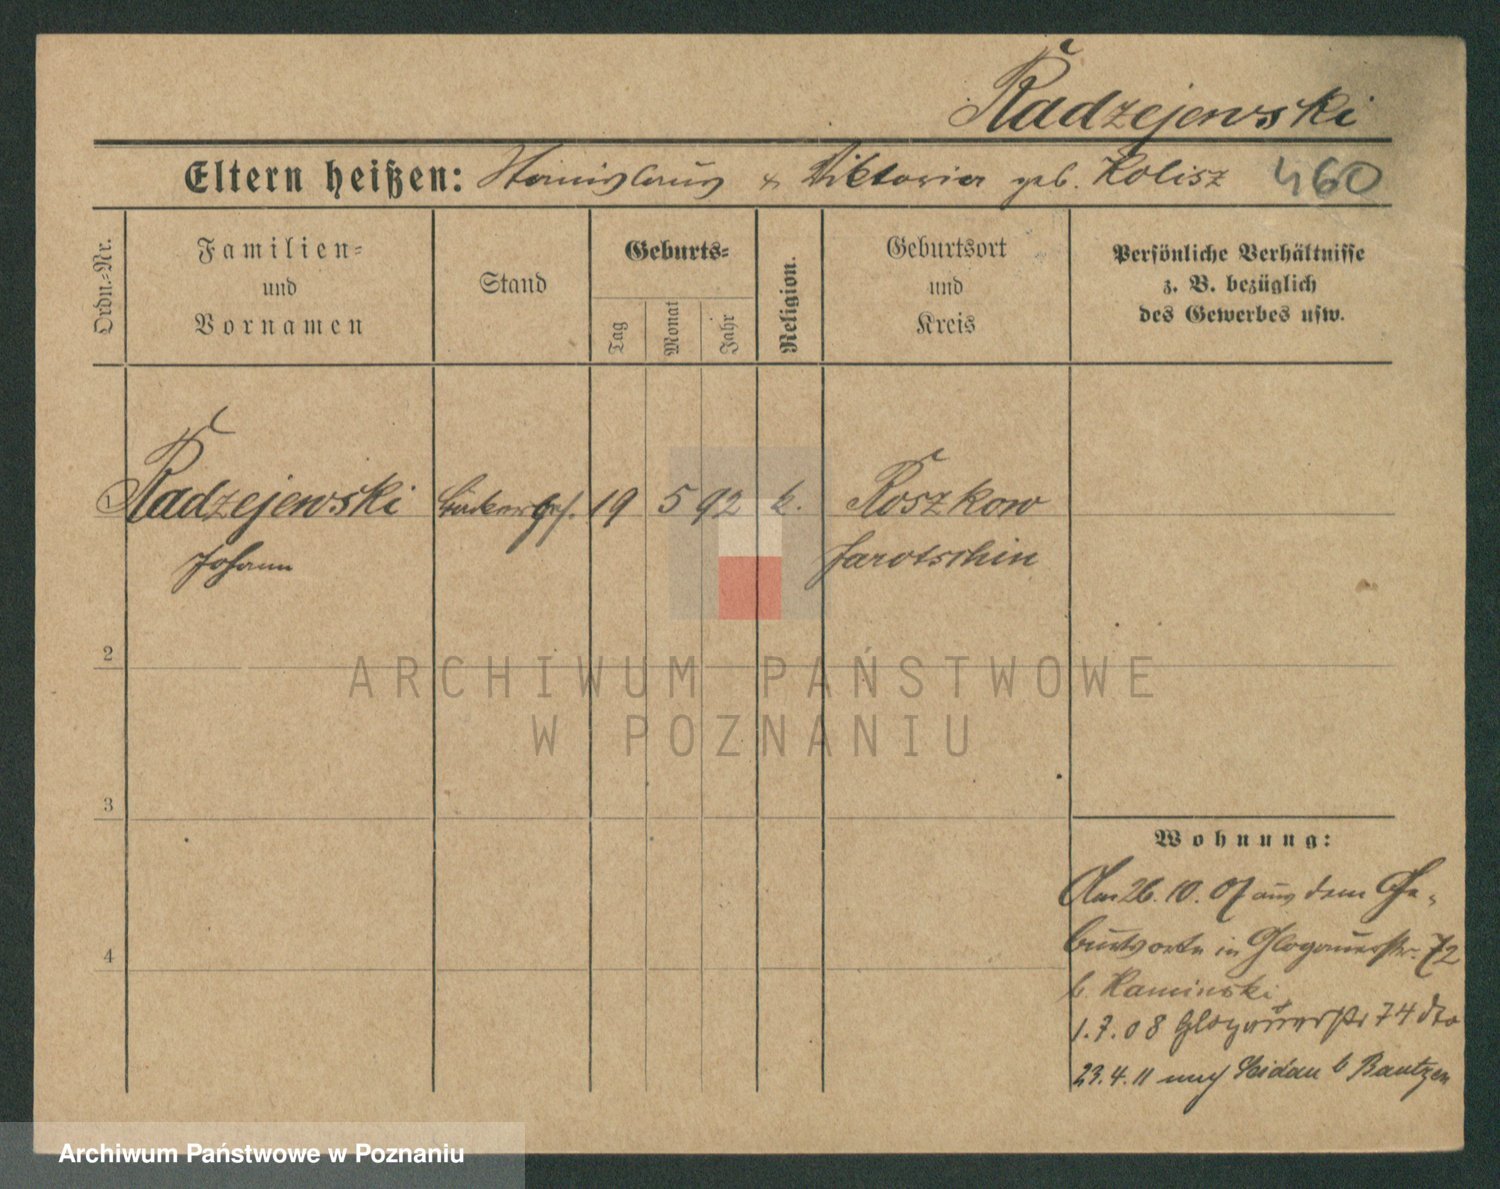 Radzejewski
Eltern heißen: Stanislaus & Viktoria geb. Kolisz 460
Ordn.-Nr.
Familien-
und
Vornamen
Stand
Geburts-
Tag
Monat
Jahr
Religion.
Geburtsort
und
Kreis
Persönliche Verhältnisse
z. B. bezüglich
des Gewerbes usw.
1 Radzejewski 19 5 92 k. Roszkow
Johann Jarotschin
2
ARCHIWUM PAŃSTWOWE
W POZNANIU
3
4
Wohnung:
Am 26.10.07 aus dem Ge-
burtsorte in Glogauerstr. 72
b. Kaminski
1.7.08 Glogauerstr 74 dto
23.4.11 nach Seidau b Bautzen
Archiwum Państwowe w Poznaniu